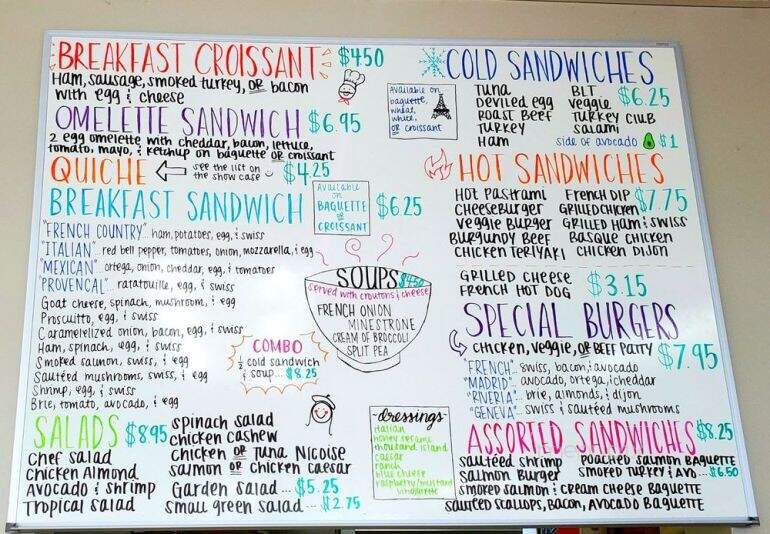 BREAKFAST CROISSANT $4.50
Ham, sausage, smoked turkey, OR bacon
with egg & cheese
OMELETTE SANDWICH $6.95
2 egg omelette with cheddar, bacon, lettuce,
tomato, mayo, & ketchup on baguette OR croissant
QUICHE
see the list on
the show case
$4.25
BREAKFAST SANDWICH
Available
on
BAGUETTE
OR
CROISSANT
$6.25
"FRENCH COUNTRY" ham, potatoes, egg, & swiss
"ITALIAN" .. red bell pepper, tomatoes, onion, mozzarella, & egg
"MEXICAN" .. ortega, onion, cheddar, egg, & tomatoes
"PROVENCAL" .. ratatouille, egg, & swiss
Goat cheese, spinach, mushroom, & egg
Proscuitto, egg, & swiss
Caramelelized onion, bacon, egg, & swiss
Ham, spinach, egg, & swiss
Smoked salmon, swiss, & egg
Sautéed mushrooms, swiss, & egg
Shrimp, egg, & swiss
Brie, tomato, avocado, & egg
COMBO
½ cold sandwich
& soup .... $8.25
SOUPS $4.50
served with croutons & cheese
FRENCH ONION
MINESTRONE
CREAM OF BROCCOLI
SPLIT PEA
SALADS $8.95
chef salad
chicken Almond
Avocado & shrimp
Tropical salad
spinach salad
chicken cashew
chicken OR tuna Nicoise
salmon OR chicken caesar
Garden salad ... $5.25
small green salad ... $2.75
-dressings-
italian
honey sesame
thousand island
caesar
ranch
blue cheese
raspberry/mustard
vinaigrette
COLD SANDWICHES
Available on
baguette,
wheat,
white,
OR croissant
Tuna
Deviled egg
Roast Beef
Turkey
Ham
BLT
veggie
Turkey club
salami
$6.25
side of avocado $1
HOT SANDWICHES
Hot Pastrami
Cheeseburger
veggie Burger
Burgundy Beef
Chicken Teriyaki
French Dip
Grilled chicken
Grilled Ham & swiss
Basque chicken
chicken Dijon
$7.75
GRILLED CHEESE
FRENCH HOT DOG
$3.15
SPECIAL BURGERS
chicken, veggie, OR BEEF PATTY $7.95
"FRENCH" .. swiss, bacon, & avocado
"MADRID" .. avocado, ortega, & cheddar
"RIVERIA" .. brie, almonds, & dijon
"GENEVA" .. swiss & sautéed mushrooms
ASSORTED SANDWICHES $8.25
sautéed shrimp
Salmon Burger
poached salmon Baguette
smoked turkey & Avo... $6.50
smoked salmon & cream cheese Baguette
sautéed scallops, bacon, avocado Baguette